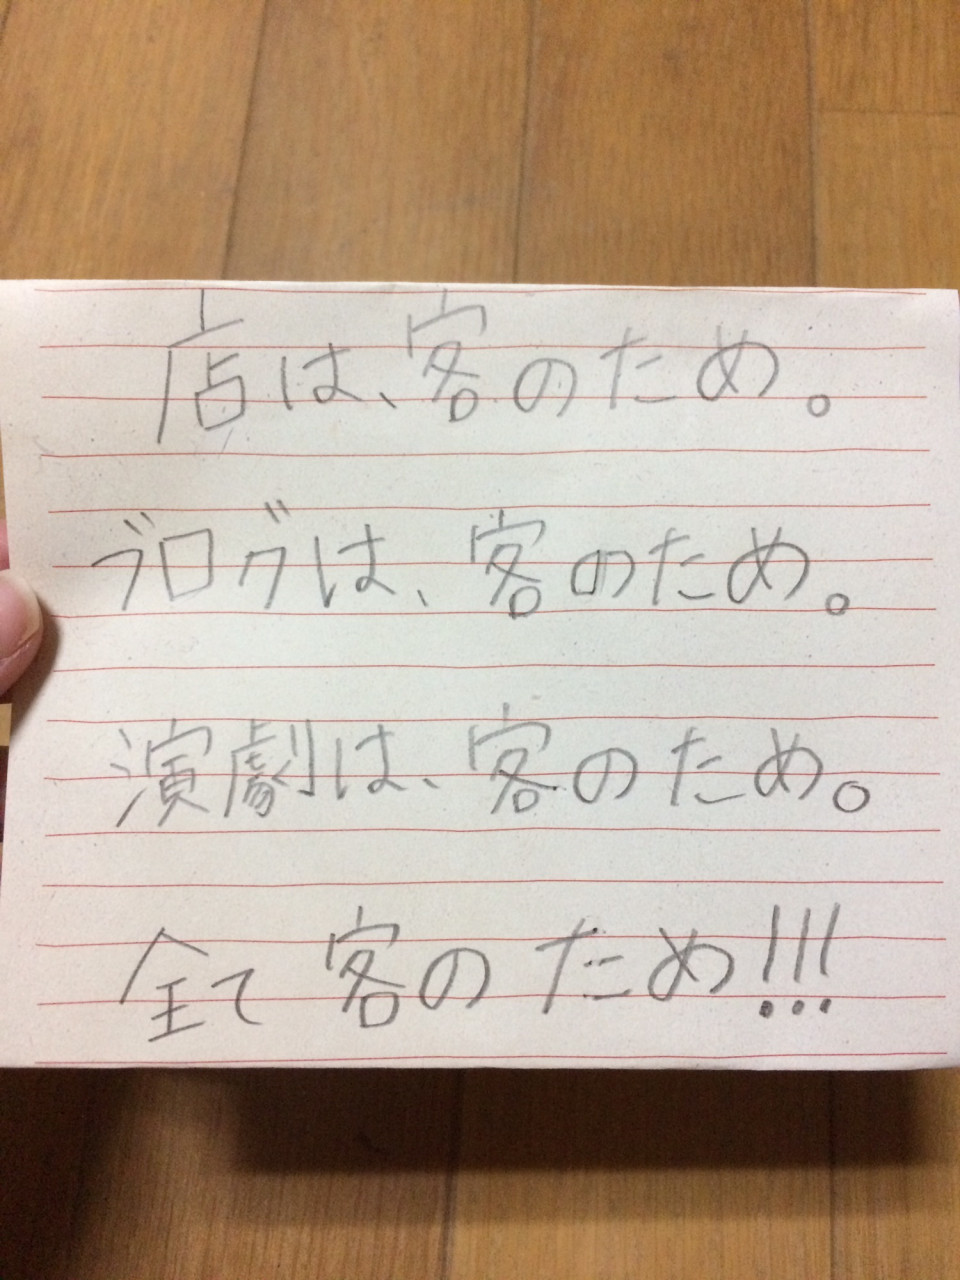 店は、客のため。
ブログは、客のため。
演劇は、客のため。
全て客のため!!!